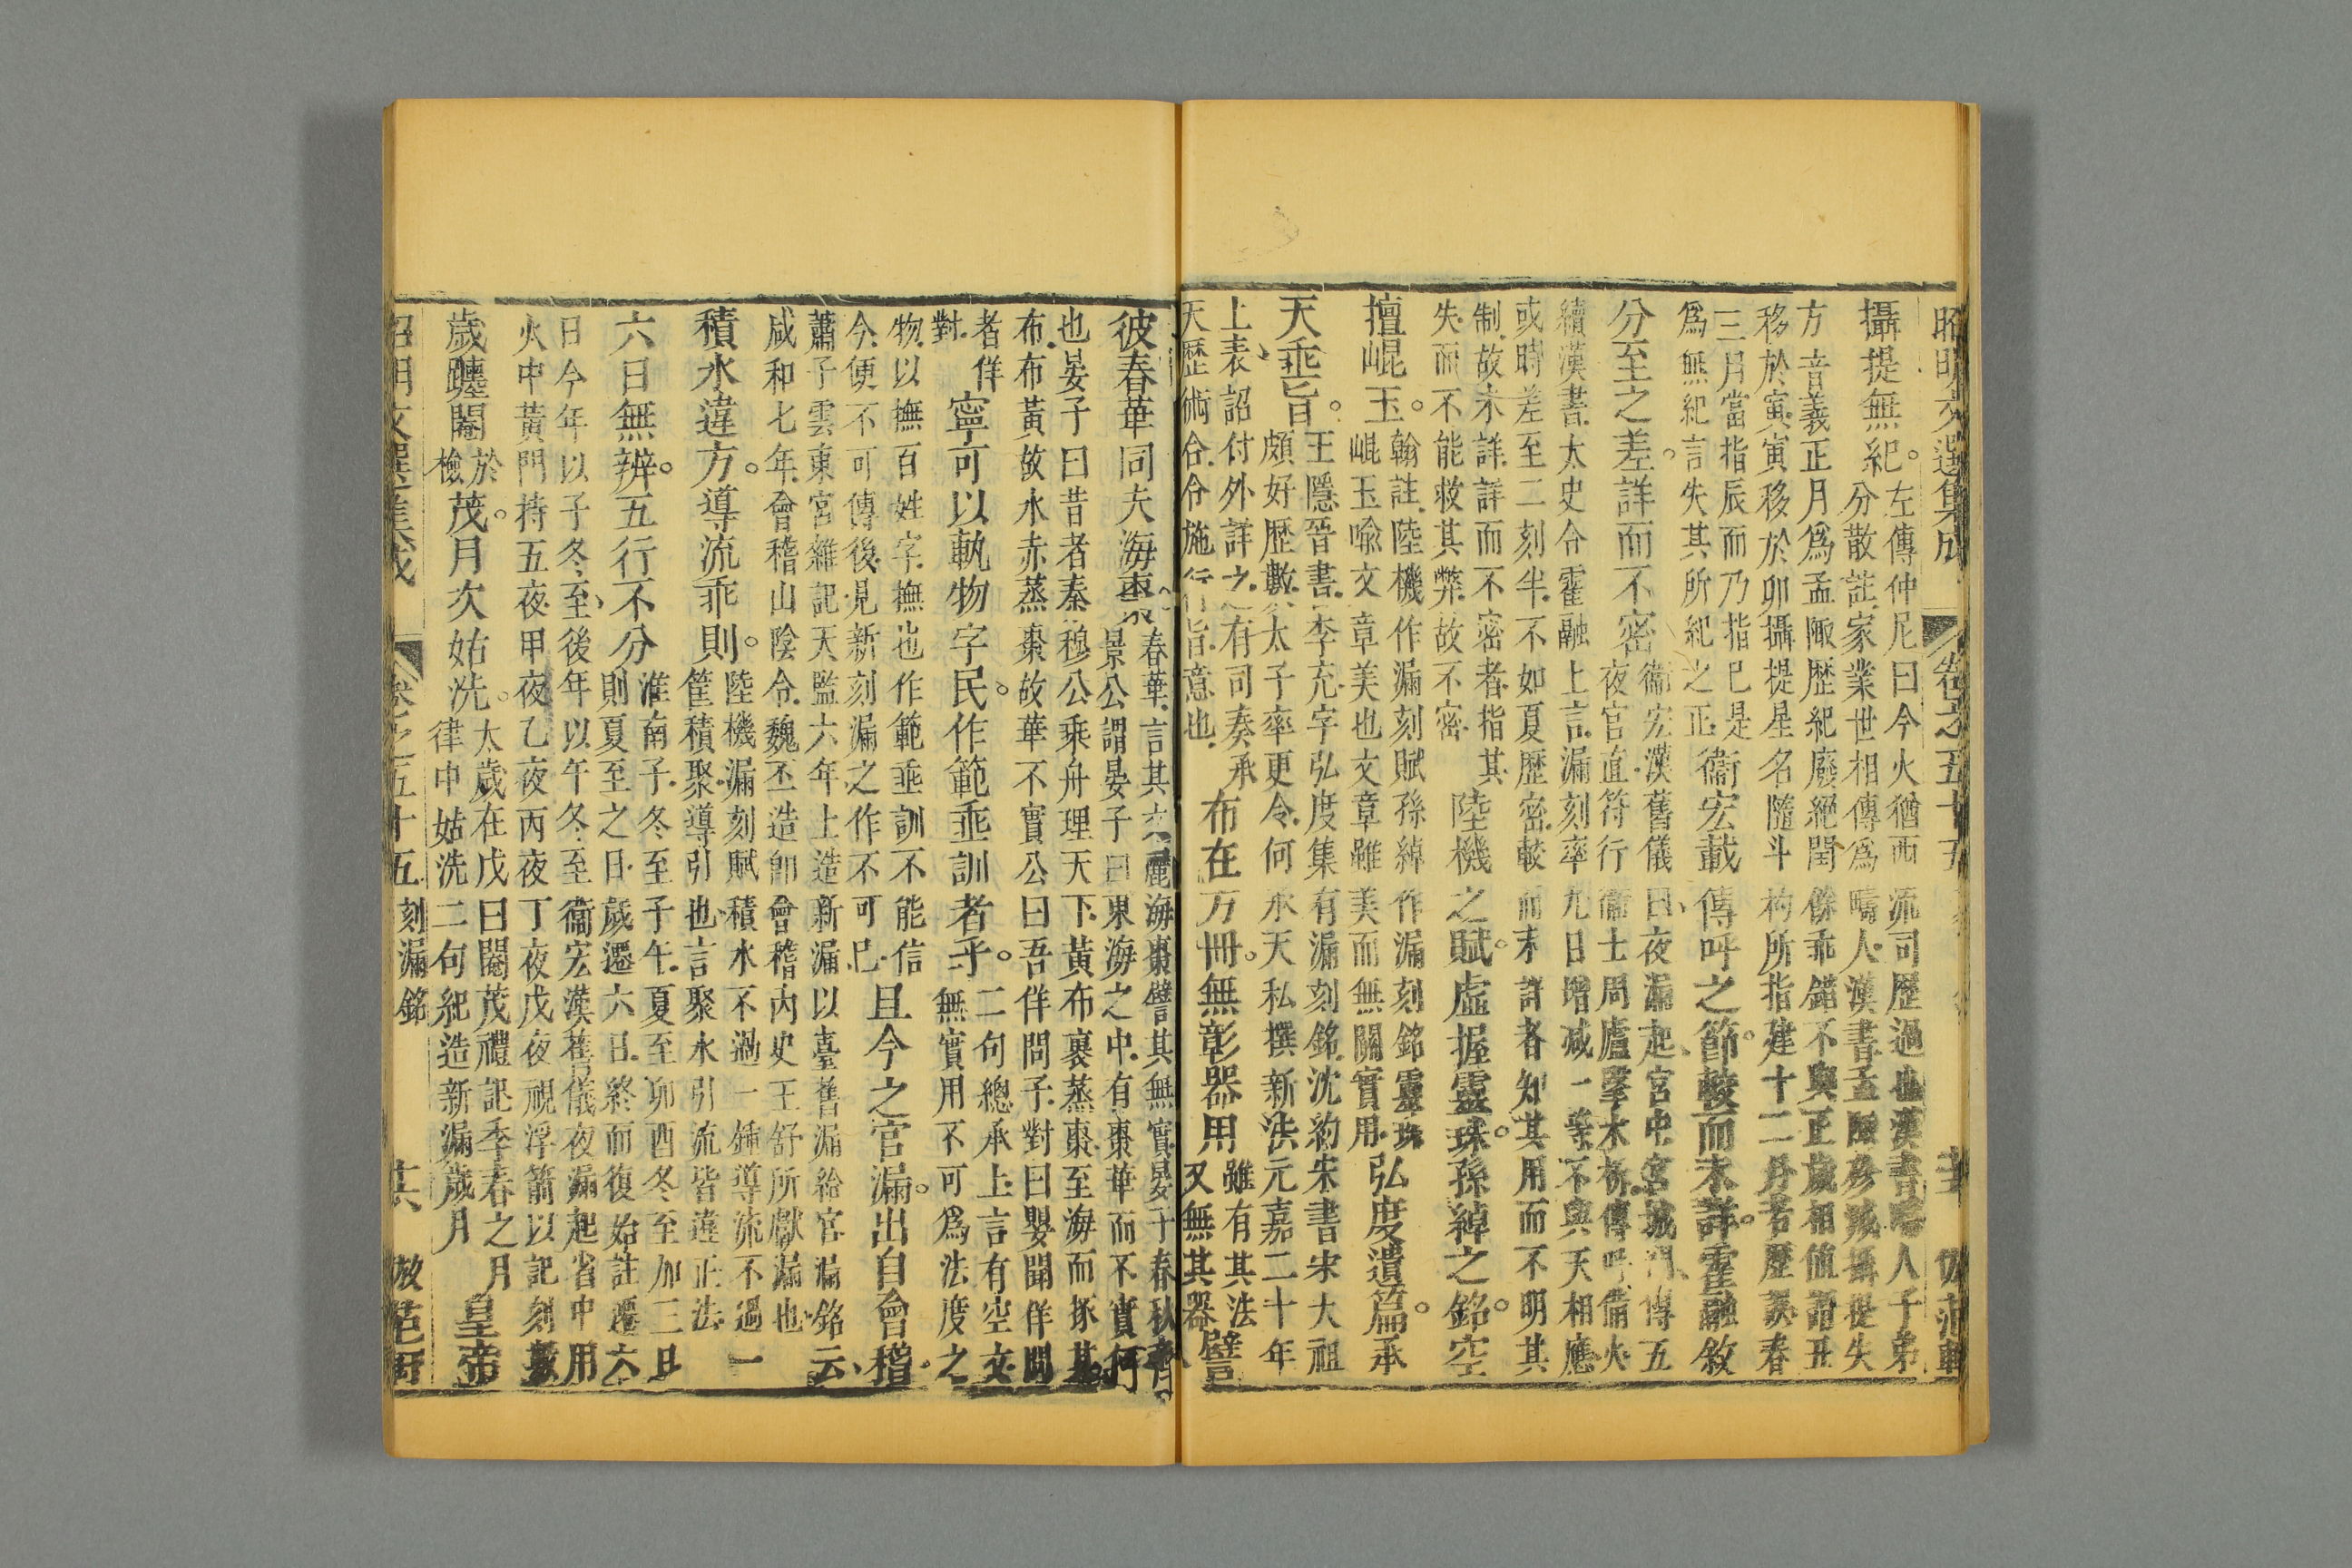 昭明文選集成 卷之五十五
攝提無紀。
左傳仲尼曰今火猶西流司歷過也漢書疇人子弟
分散註家業世相傳爲疇人漢書孟陬殄滅攝提失
方音義正月爲孟陬歷紀廢絕閏餘乖錯不與正歲相值謂丑
移於寅寅移於卯攝提星名隨斗杓所指建十二月若歷誤春
三月當指辰而乃指巳是
爲無紀言失其所紀之正
衞宏載傳呼之節。較而未詳。霍融敘
分至之差。詳而不密
衞宏漢舊儀曰夜漏起宮中宮城門傳五
夜官直符行衞士周廬擊木柝傳呼備火
續漢書太史令霍融上言漏刻率九日增減一等不與天相應
或時差至二刻半不如夏歷密較而未詳者知其用而不明其
制故未詳詳而不密者指其
失而不能救其弊故不密
陸機之賦。虛握靈珠。孫綽之銘。空
擅崐玉。
翰註陸機作漏刻賦孫綽作漏刻銘靈珠
崐玉喻文章美也文章雖美而無關實用
弘度遺篇。承
天垂旨。
王隱晉書李充字弘度集有漏刻銘沈約宋書宋大祖
頗好歷數太子率更令何承天私撰新法元嘉二十年
上表詔付外詳之有司奏承
天歷術合令施行旨意也
布在方冊。無彰器用
雖有其法
又無其器
譬
彼春華同夫海棗
春華言其文麗海棗譬其無實晏子春秋齊
景公謂晏子曰東海之中有棗華而不實何
也晏子曰昔者秦穆公乘舟理天下黃布裹蒸棗至海而捄其
布布黃故水赤蒸棗故華不實公曰吾佯問子對曰嬰聞佯問
者佯
對
寧可以軌物字民。作範垂訓者乎。
二句總承上言有空文
無實用不可爲法度之
物以撫百姓字撫也作範垂訓不能信
今便不可傳後見新刻漏之作不可已
且今之官漏。出自會稽
蕭子雲東宮雜記天監六年上造新漏以臺舊漏給官漏銘云
咸和七年會稽山陰令魏丕造卽會稽內史王舒所獻漏也
積水違方。導流乖則。
陸機漏刻賦積水不過一鍾導流不過一
筐積聚導引也言聚水引流皆違正法
六日無辨。五行不分
淮南子冬至子午夏至卯酉冬至加三日
則夏至之日歲遷六日終而復始註遷六
日今年以子冬至後年以午冬至衞宏漢舊儀夜漏起省中用
火中黃門持五夜甲夜乙夜丙夜丁夜戊夜視浮箭以記刻數
歲躔閹
於
檢
茂。月次姑洗。
太歲在戊曰閹茂禮記季春之月
律中姑洗二句紀造新漏歲月
皇帝
昭明文選集成 卷之五十五 刻漏銘